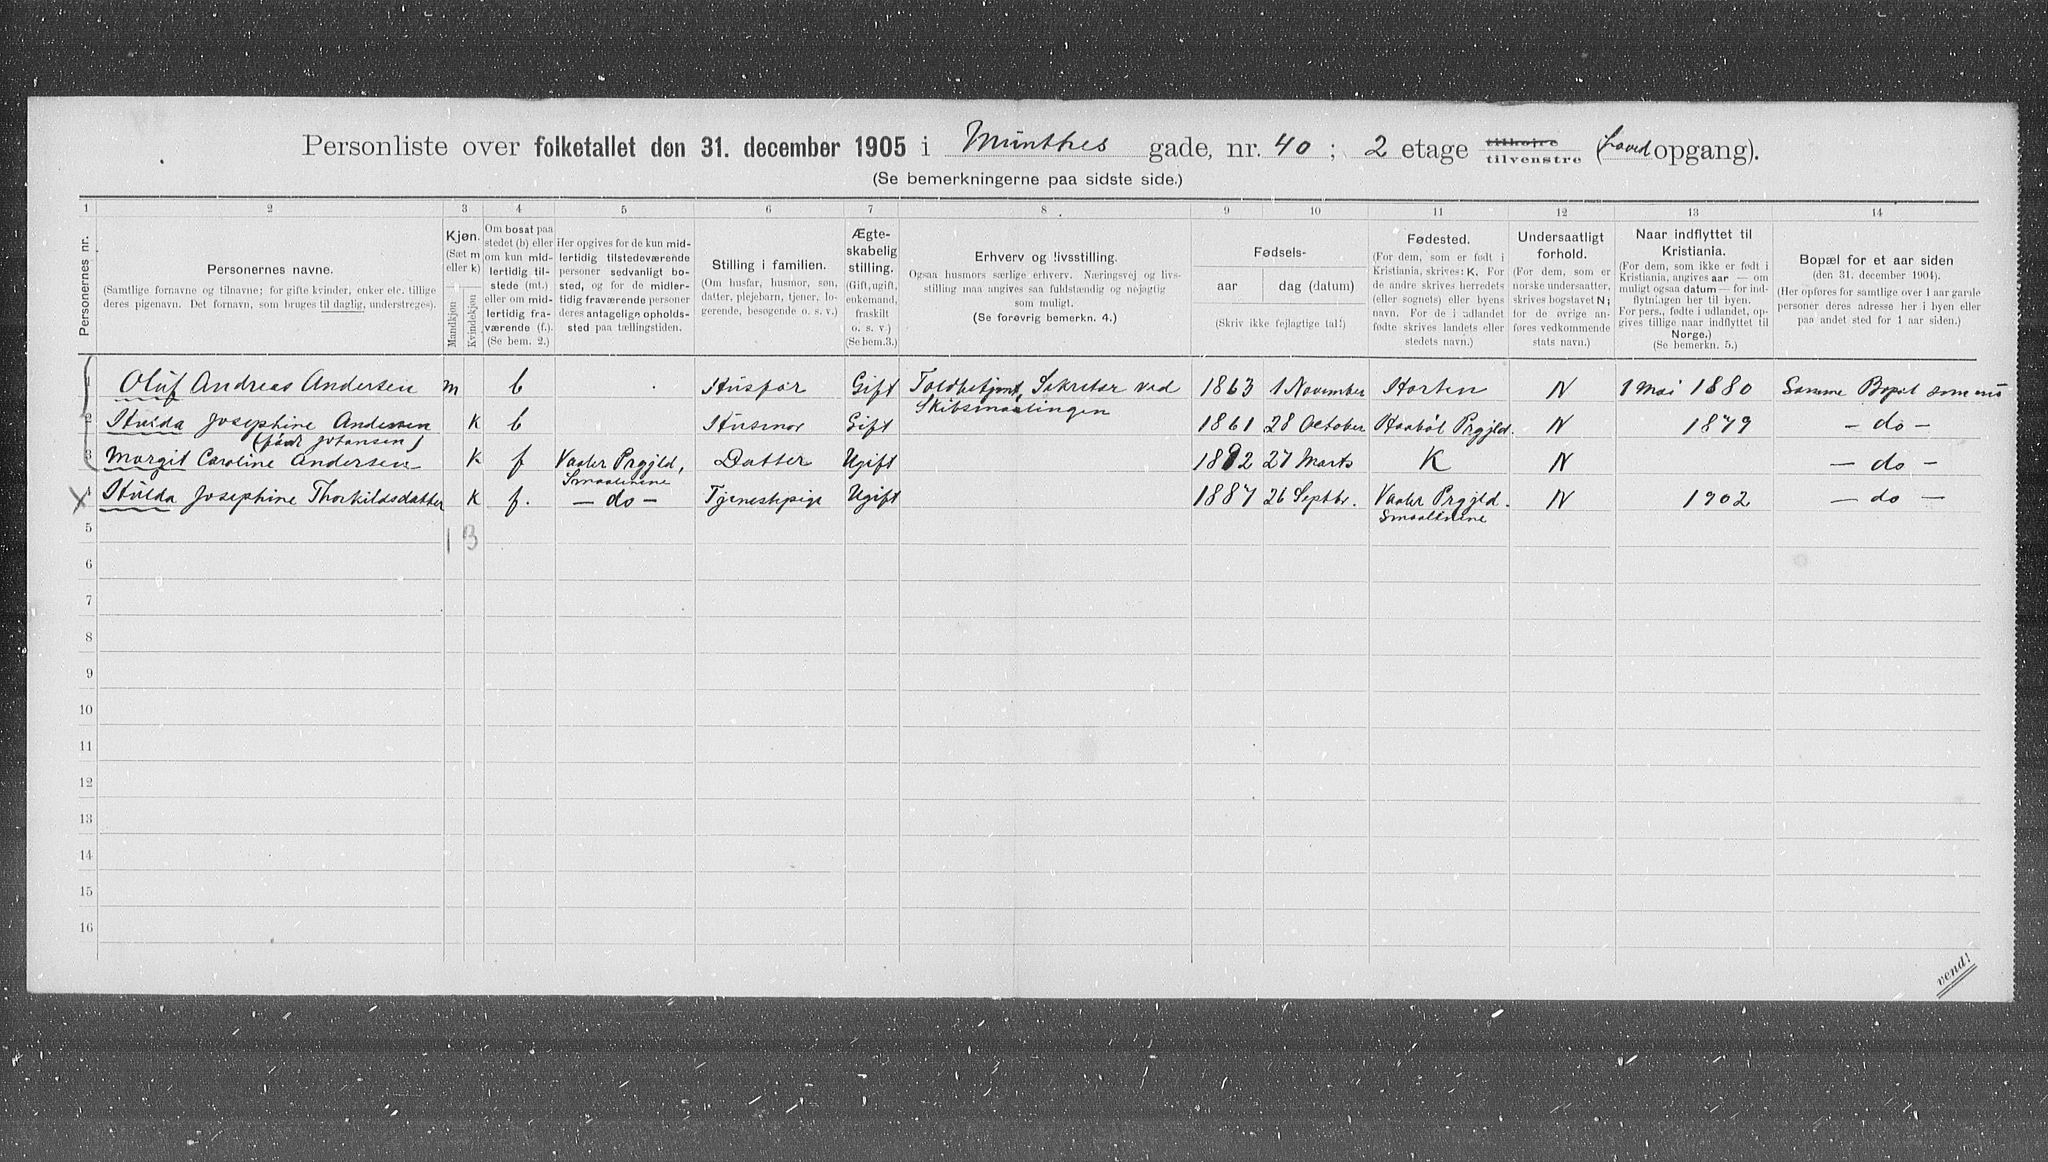 Personliste over folketallet den 31. december 1905 i Munthes gade, nr. 40 ; 2 etage tilhøjre tilvenstre (Hoved opgang).
(Se bemerkningerne paa sidste side.)
1 2 3 4 5 6 7 8 9 10 11 12 13 14
Personernes nr.
Personernes navne.
(Samtlige fornavne og tilnavne; for gifte kvinder, enker etc. tillige
deres pigenavn. Det fornavn, som bruges til daglig, understreges).
Kjøn.
(Sæt m
eller k)
Mandkjøn
Kvindekjøn
Om bosat paa
stedet (b) eller
om kun mid-
lertidig til-
stede (mt.)
eller om mid-
lertidig fra-
værende (f.).
(Se bem. 2.)
Her opgives for de kun mid-
lertidig tilstedeværende
personer sedvanligt bo-
sted, og for de midler-
tidig fraværende personer
deres antagelige opholds-
sted paa tællingstiden.
Stilling i familien.
(Om husfar, husmor, søn,
datter, plejebarn, tjener, lo-
gerende, besøgende o. s. v.)
Ægte-
skabelig
stilling.
(Gift, ugift,
enkemand,
fraskilt
o. s. v.)
(Se bem.3.)
Erhverv og livsstilling.
Ogsaa husmors særlige erhverv. Næringsvej og livs-
stilling maa angives saa fuldstændig og nøjagtig
som muligt.
(Se forøvrig bemerkn. 4.)
Fødsels-
aar
dag (datum)
(Skriv ikke fejlagtige tal!)
Fødested.
(For dem, som er født i
Kristiania, skrives: K. For
de andre skrives herredets
(eller sognets) eller byens
navn. For de i udlandet
fødte skrives landets eller
stedets navn.)
Undersaatligt
forhold.
(For dem, som er
norske undersaatter,
skrives bogstavet N;
for de øvrige an-
føres vedkommende
stats navn.)
Naar indflyttet til
Kristiania.
(For dem, som ikke er født i
Kristiania, angives aar — om
muligt ogsaa datum — for ind-
flytningen her til byen.
For pers., fødte i udlandet, op-
gives tillige naar indflyttet til
Norge.)
(Se bemerkn. 5.)
Bopæl for et aar siden
(den 31. december 1904).
(Her opføres for samtlige over 1 aar gamle
personer deres adresse her i byen eller
paa andet sted for 1 aar siden.)
1 Oluf Andreas Andersen m b Husfar Gift Toldbetjent, Sekretær ved 1863 1 November Horten N 1 Mai 1880 Samme Bopæl som nu
Skibsmaalingen
2 Hulda Josephine Andersen K b Husmor Gift 1861 28 October Haabøl Prgjld. N 1879 — do —
(født Johansen)
3 Margit Caroline Andersen K f Vaaler Prgjld, Datter Ugift 1892 27 Marts K N — do —
Smaalenene
4 Hulda Josephine Thorkildsdatter K f. — do — Tjenestepige Ugift 1887 26 Septbr. Vaaler Prgjld. N 1902 — do —
Smaalenene
5
1 3
6
7
8
9
10
11
12
13
14
15
16
vend!